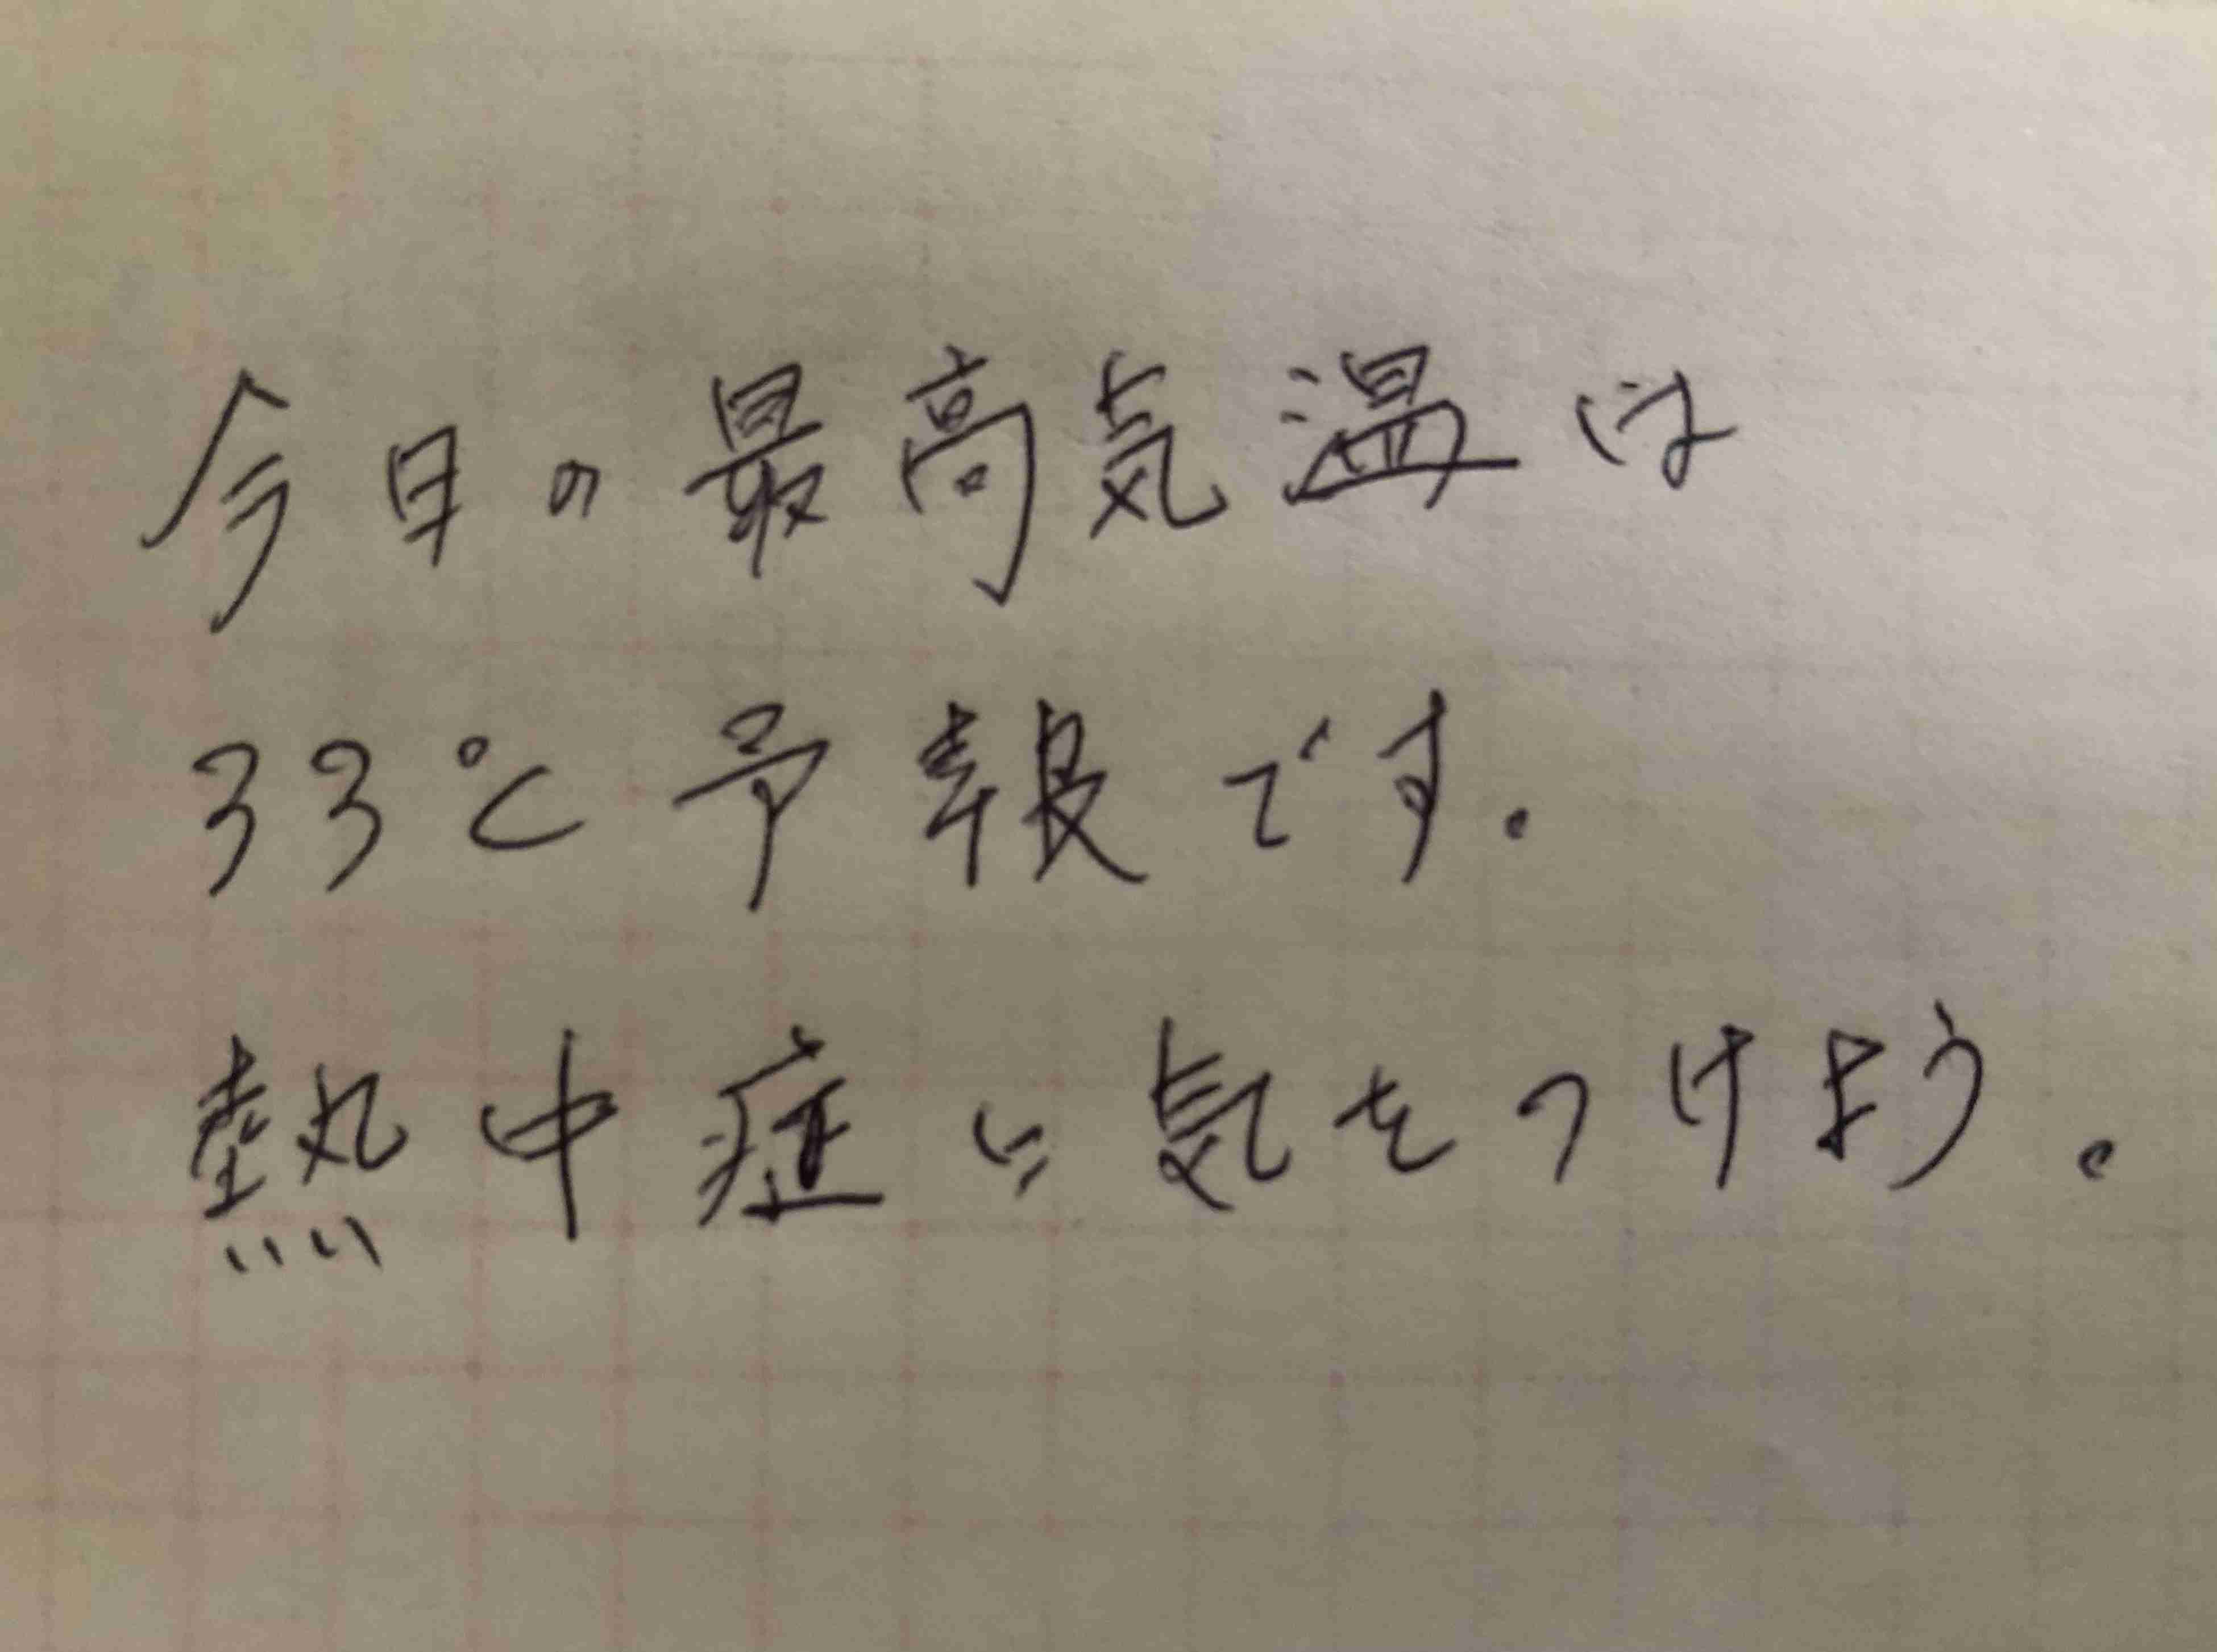 今日の最高気温は
33℃予報です。
熱中症に気をつけよう。